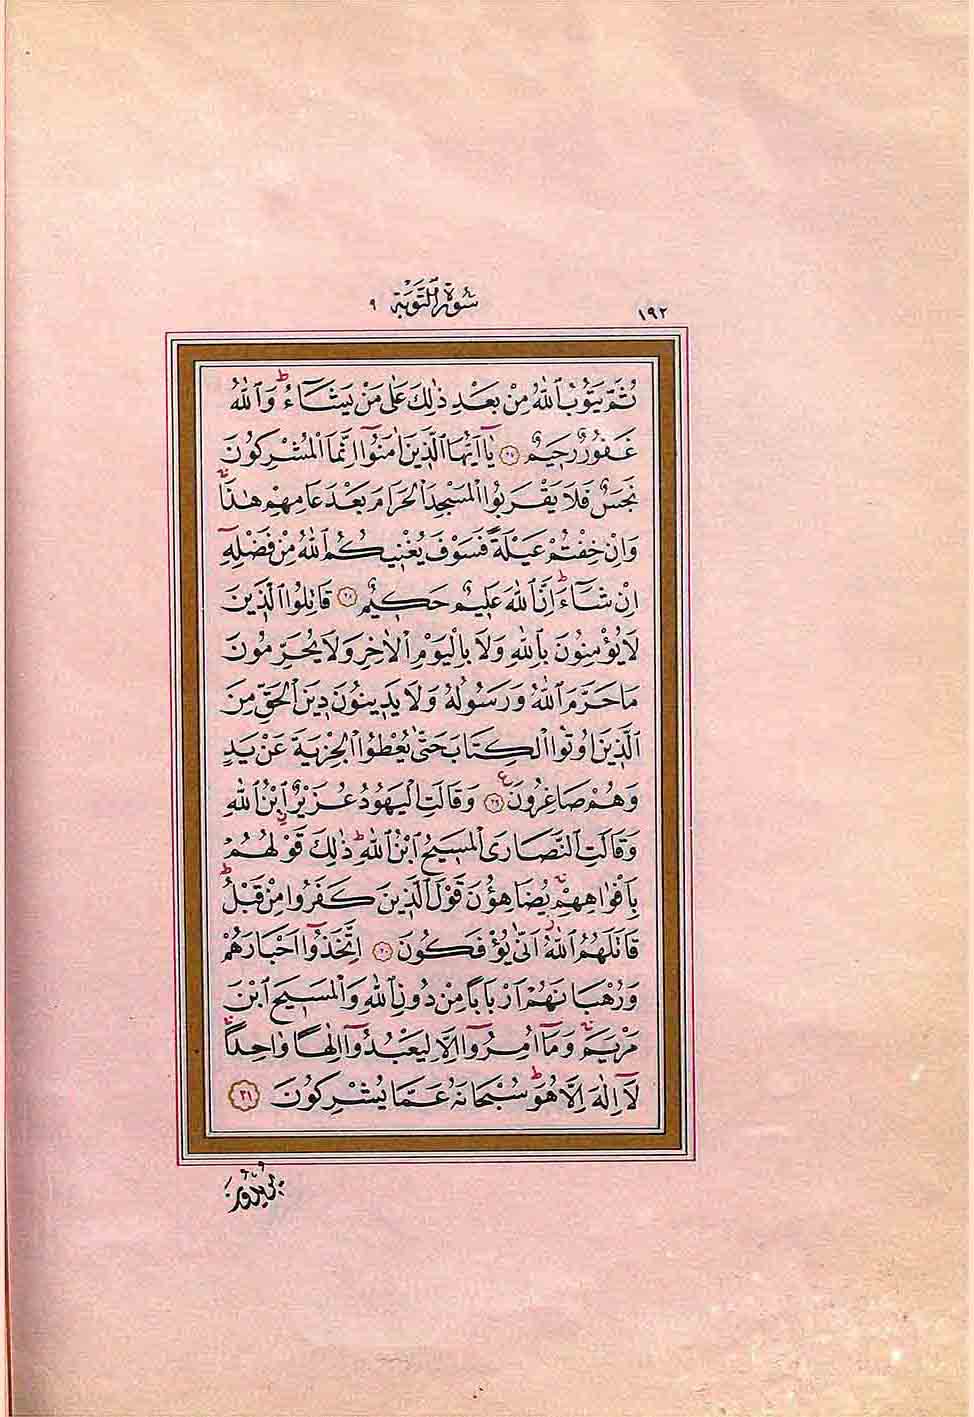 ١٩٢
سُورَةُ التَّوْبَةِ ٩
ثُمَّ يَتُوبُ ٱللّٰهُ مِنْ بَعْدِ ذٰلِكَ عَلٰى مَنْ يَشَٓاءُۜ وَٱللّٰهُ
غَفُورٌ رَحِيمٌ ﴿٢٧﴾ يَٓا اَيُّهَا الَّذِينَ اٰمَنُٓوا اِنَّمَا الْمُشْرِكُونَ
نَجَسٌ فَلَا يَقْرَبُوا الْمَسْجِدَ الْحَرَامَ بَعْدَ عَامِهِمْ هٰذَاۚ
وَاِنْ خِفْتُمْ عَيْلَةً فَسَوْفَ يُغْنِيكُمُ ٱللّٰهُ مِنْ فَضْلِهِٓ
اِنْ شَٓاءَۜ اِنَّ ٱللّٰهَ عَلِيمٌ حَكِيمٌ ﴿٢٨﴾ قَاتِلُوا الَّذِينَ
لَا يُؤْمِنُونَ بِٱللّٰهِ وَلَا بِالْيَوْمِ الْاٰخِرِ وَلَا يُحَرِّمُونَ
مَا حَرَّمَ ٱللّٰهُ وَرَسُولُهُ وَلَا يَدِينُونَ دِينَ الْحَقِّ مِنَ
الَّذِينَ اُوتُوا الْكِتَابَ حَتّٰى يُعْطُوا الْجِزْيَةَ عَنْ يَدٍ
وَهُمْ صَاغِرُونَ ﴿٢٩﴾ وَقَالَتِ الْيَهُودُ عُزَيْرٌ ٱبْنُ ٱللّٰهِ
وَقَالَتِ النَّصَارَى الْمَسِيحُ ٱبْنُ ٱللّٰهِۜ ذٰلِكَ قَوْلُهُمْ
بِاَفْوَاهِهِمْۚ يُضَاهِؤُ۫نَ قَوْلَ الَّذِينَ كَفَرُوا مِنْ قَبْلُۜ
قَاتَلَهُمُ ٱللّٰهُۘ اَنّٰى يُؤْفَكُونَ ﴿٣٠﴾ اِتَّخَذُٓوا اَحْبَارَهُمْ
وَرُهْبَانَهُمْ اَرْبَابًا مِنْ دُونِ ٱللّٰهِ وَالْمَسِيحَ ٱبْنَ
مَرْيَمَۚ وَمَٓا اُمِرُٓوا اِلَّا لِيَعْبُدُٓوا اِلٰهًا وَاحِدًاۚ
لَٓا اِلٰهَ اِلَّا هُوَۜ سُبْحَانَهُ عَمَّا يُشْرِكُونَ ﴿٣١﴾
يُرِيدُونَ